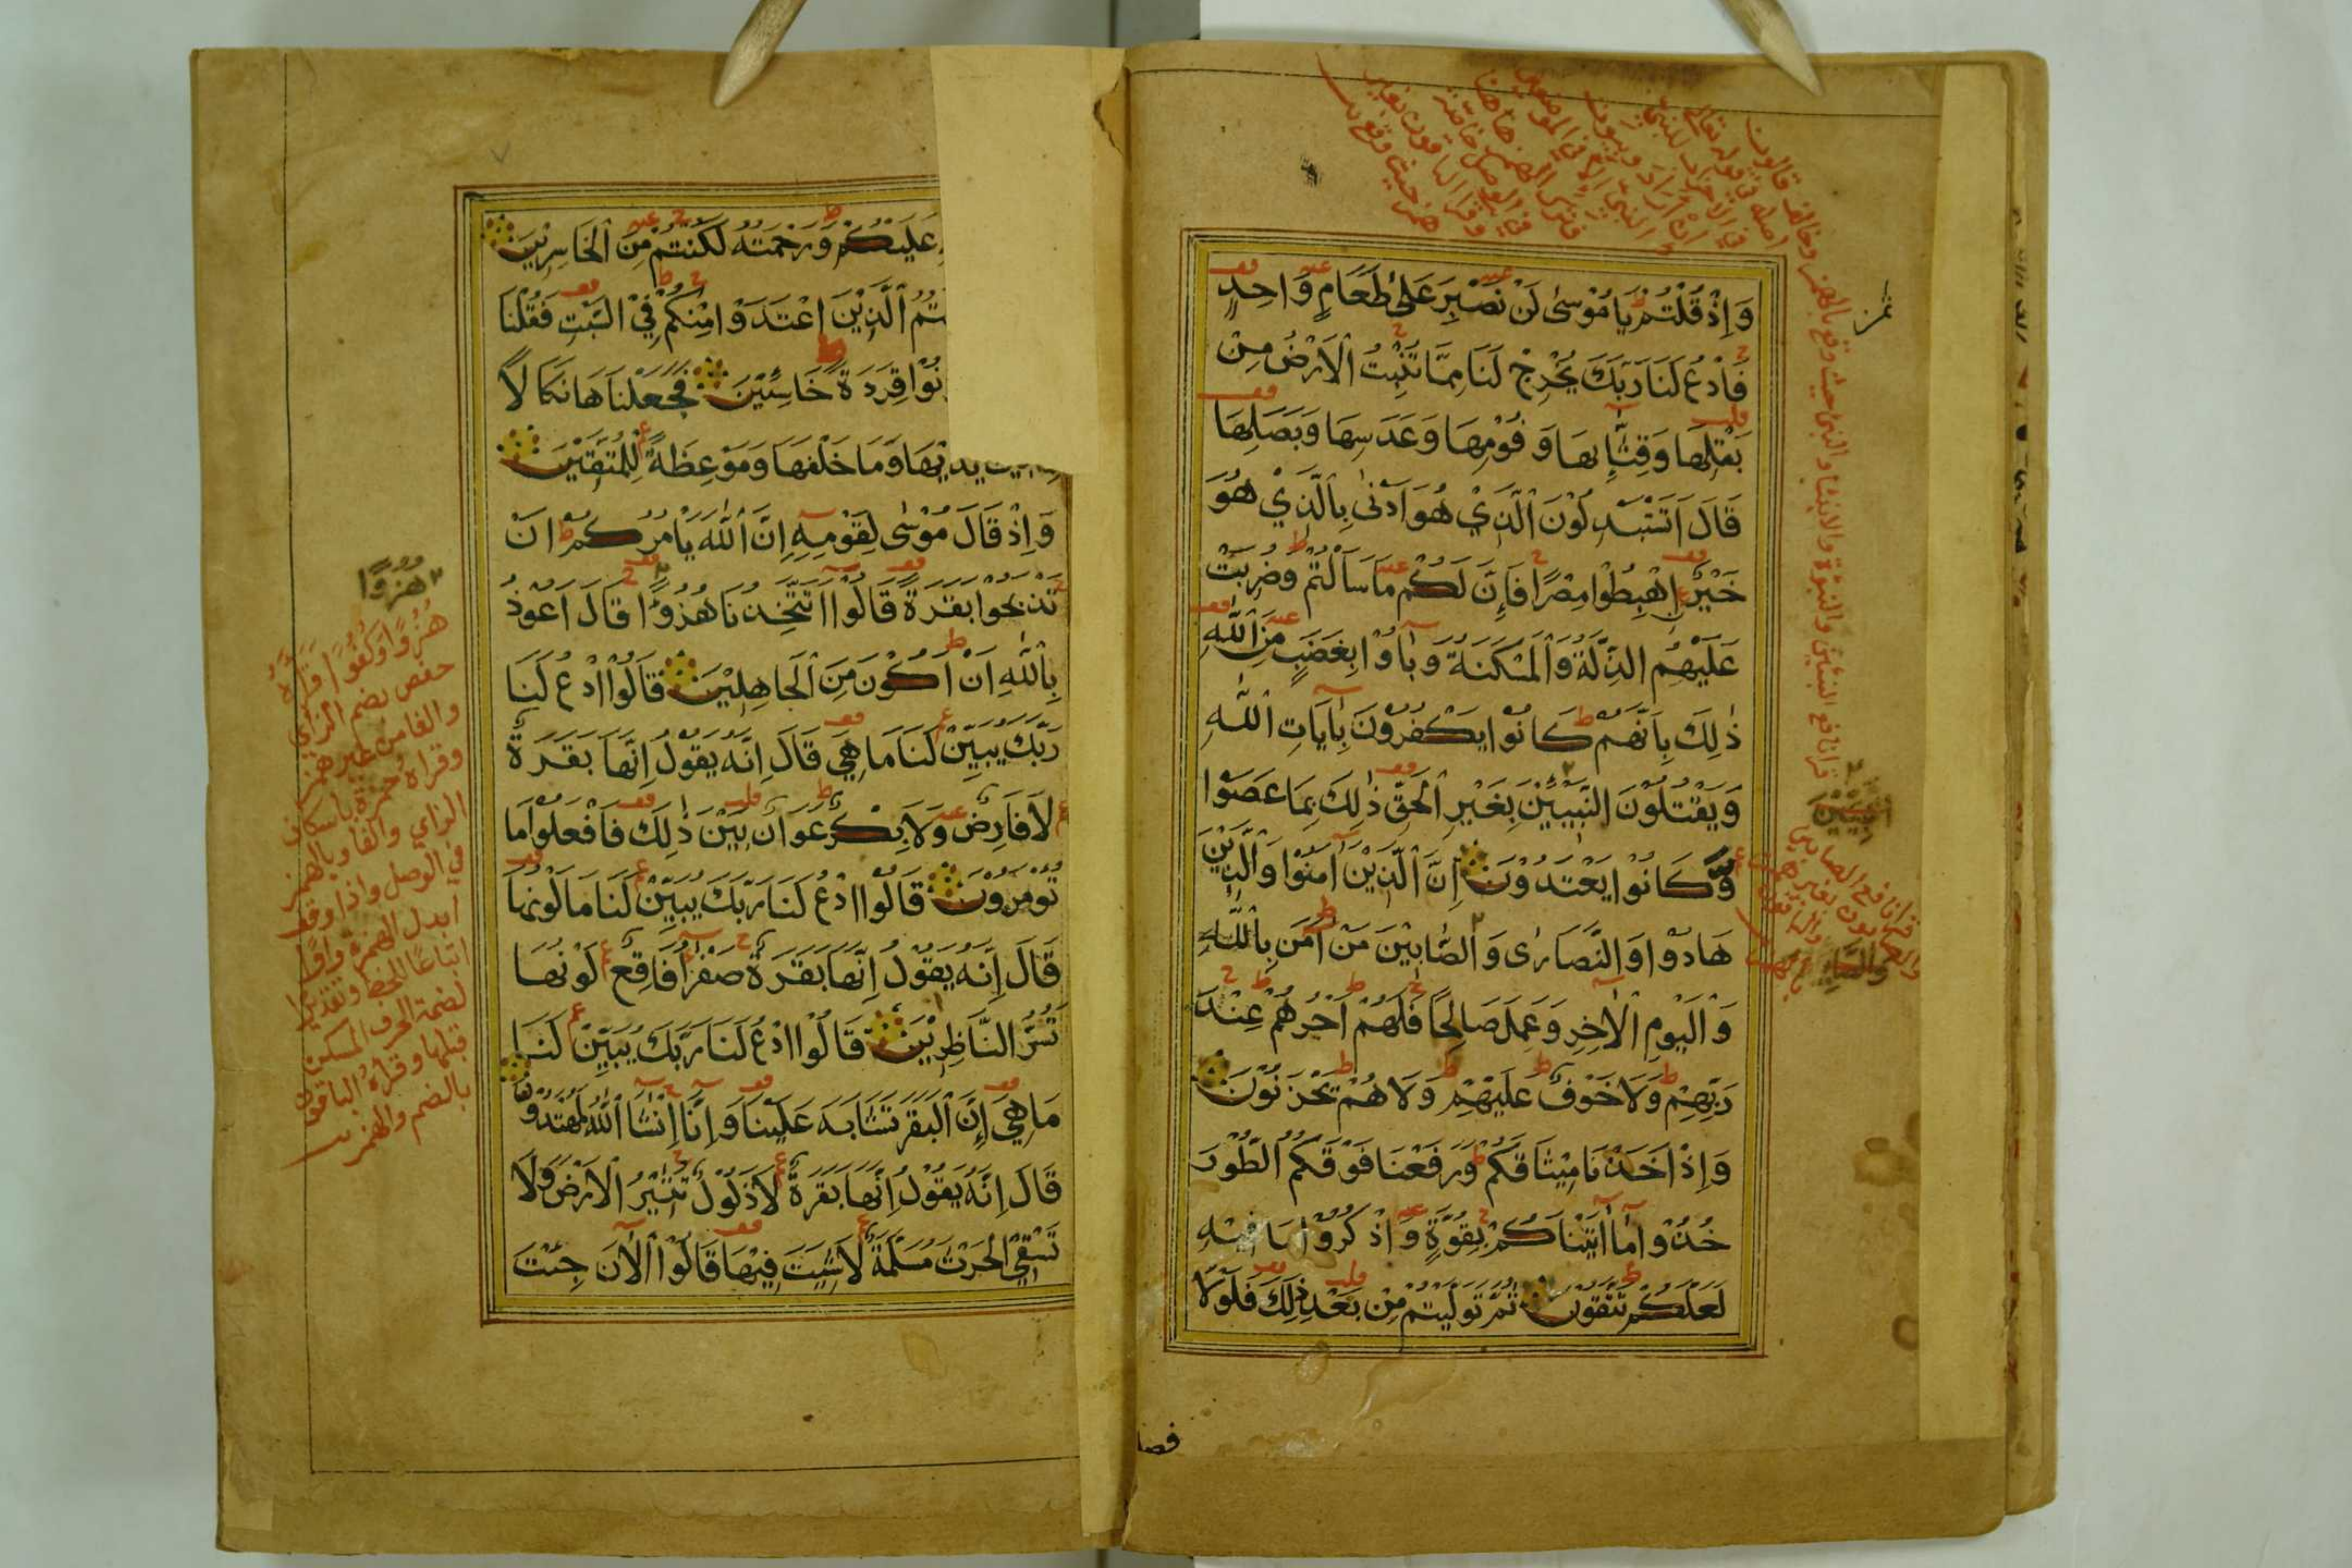 وَاِذْ قُلْتُمْ يَا مُوْسٰى لَنْ نَصْبِرَ عَلٰى طَعَامٍ وَاحِدٍ
فَادْعُ لَنَا رَبَّكَ يُخْرِجْ لَنَا مِمَّا تُنْبِتُ الْاَرْضُ مِنْ
بَقْلِهَا وَقِثَّآئِهَا وَفُوْمِهَا وَعَدَسِهَا وَبَصَلِهَا
قَالَ اَتَسْتَبْدِلُوْنَ الَّذِيْ هُوَ اَدْنٰى بِالَّذِيْ هُوَ
خَيْرٌ اِهْبِطُوْا مِصْرًا فَاِنَّ لَكُمْ مَا سَاَلْتُمْ وَضُرِبَتْ
عَلَيْهِمُ الذِّلَّةُ وَالْمَسْكَنَةُ وَبَآؤُا بِغَضَبٍ مِنَ اللّٰهِ
ذٰلِكَ بِاَنَّهُمْ كَانُوْا يَكْفُرُوْنَ بِاٰيَاتِ اللّٰهِ
وَيَقْتُلُوْنَ النَّبِيِّيْنَ بِغَيْرِ الْحَقِّ ذٰلِكَ بِمَا عَصَوْا
وَّكَانُوْا يَعْتَدُوْنَ اِنَّ الَّذِيْنَ اٰمَنُوْا وَالَّذِيْنَ
هَادُوْا وَالنَّصَارٰى وَالصَّابِئِيْنَ مَنْ اٰمَنَ بِاللّٰهِ
وَالْيَوْمِ الْاٰخِرِ وَعَمِلَ صَالِحًا فَلَهُمْ اَجْرُهُمْ عِنْدَ
رَبِّهِمْ وَلَا خَوْفٌ عَلَيْهِمْ وَلَا هُمْ يَحْزَنُوْنَ
وَاِذْ اَخَذْنَا مِيْثَاقَكُمْ وَرَفَعْنَا فَوْقَكُمُ الطُّوْرَ
خُذُوْا مَآ اٰتَيْنَاكُمْ بِقُوَّةٍ وَاذْكُرُوْا مَا فِيْهِ
لَعَلَّكُمْ تَتَّقُوْنَ ثُمَّ تَوَلَّيْتُمْ مِنْ بَعْدِ ذٰلِكَ فَلَوْلَا
فضل
عَلَيْكُمْ وَرَحْمَتُهُ لَكُنْتُمْ مِنَ الْخَاسِرِيْنَ
الَّذِيْنَ اعْتَدَوْا مِنْكُمْ فِي السَّبْتِ فَقُلْنَا
نُوْا قِرَدَةً خَاسِئِيْنَ فَجَعَلْنَاهَا نَكَالًا
يَدَيْهَا وَمَا خَلْفَهَا وَمَوْعِظَةً لِلْمُتَّقِيْنَ
وَاِذْ قَالَ مُوْسٰى لِقَوْمِهٖ اِنَّ اللّٰهَ يَاْمُرُكُمْ اَنْ
تَذْبَحُوْا بَقَرَةً قَالُوْا اَتَتَّخِذُنَا هُزُوًا قَالَ اَعُوْذُ
بِاللّٰهِ اَنْ اَكُوْنَ مِنَ الْجَاهِلِيْنَ قَالُوْا ادْعُ لَنَا
رَبَّكَ يُبَيِّنْ لَنَا مَا هِيَ قَالَ اِنَّهُ يَقُوْلُ اِنَّهَا بَقَرَةٌ
لَا فَارِضٌ وَلَا بِكْرٌ عَوَانٌ بَيْنَ ذٰلِكَ فَافْعَلُوْا مَا
تُؤْمَرُوْنَ قَالُوْا ادْعُ لَنَا رَبَّكَ يُبَيِّنْ لَنَا مَا لَوْنُهَا
قَالَ اِنَّهُ يَقُوْلُ اِنَّهَا بَقَرَةٌ صَفْرَآءُ فَاقِعٌ لَوْنُهَا
تَسُرُّ النَّاظِرِيْنَ قَالُوْا ادْعُ لَنَا رَبَّكَ يُبَيِّنْ لَنَا
مَا هِيَ اِنَّ الْبَقَرَ تَشَابَهَ عَلَيْنَا وَاِنَّآ اِنْشَآءَ اللّٰهُ لَمُهْتَدُوْنَ
قَالَ اِنَّهُ يَقُوْلُ اِنَّهَا بَقَرَةٌ لَا ذَلُوْلٌ تُثِيْرُ الْاَرْضَ وَلَا
تَسْقِي الْحَرْثَ مُسَلَّمَةٌ لَا شِيَةَ فِيْهَا قَالُوْا الْاٰنَ جِئْتَ
هزوًا
هُزُوًا وكُفُوًا قرأ
حفص بضم الزاي
والفا من غير همز
وقراه حمزة باسكان
الزاي والفا وبالهمز
في الوصل واذا وقف
ابدل الهمزة واوًا
اتباعًا للخط وتقديرا
لضمة الحرف المسكن
قبلها وقرأه الباقون
بالضم والهمز